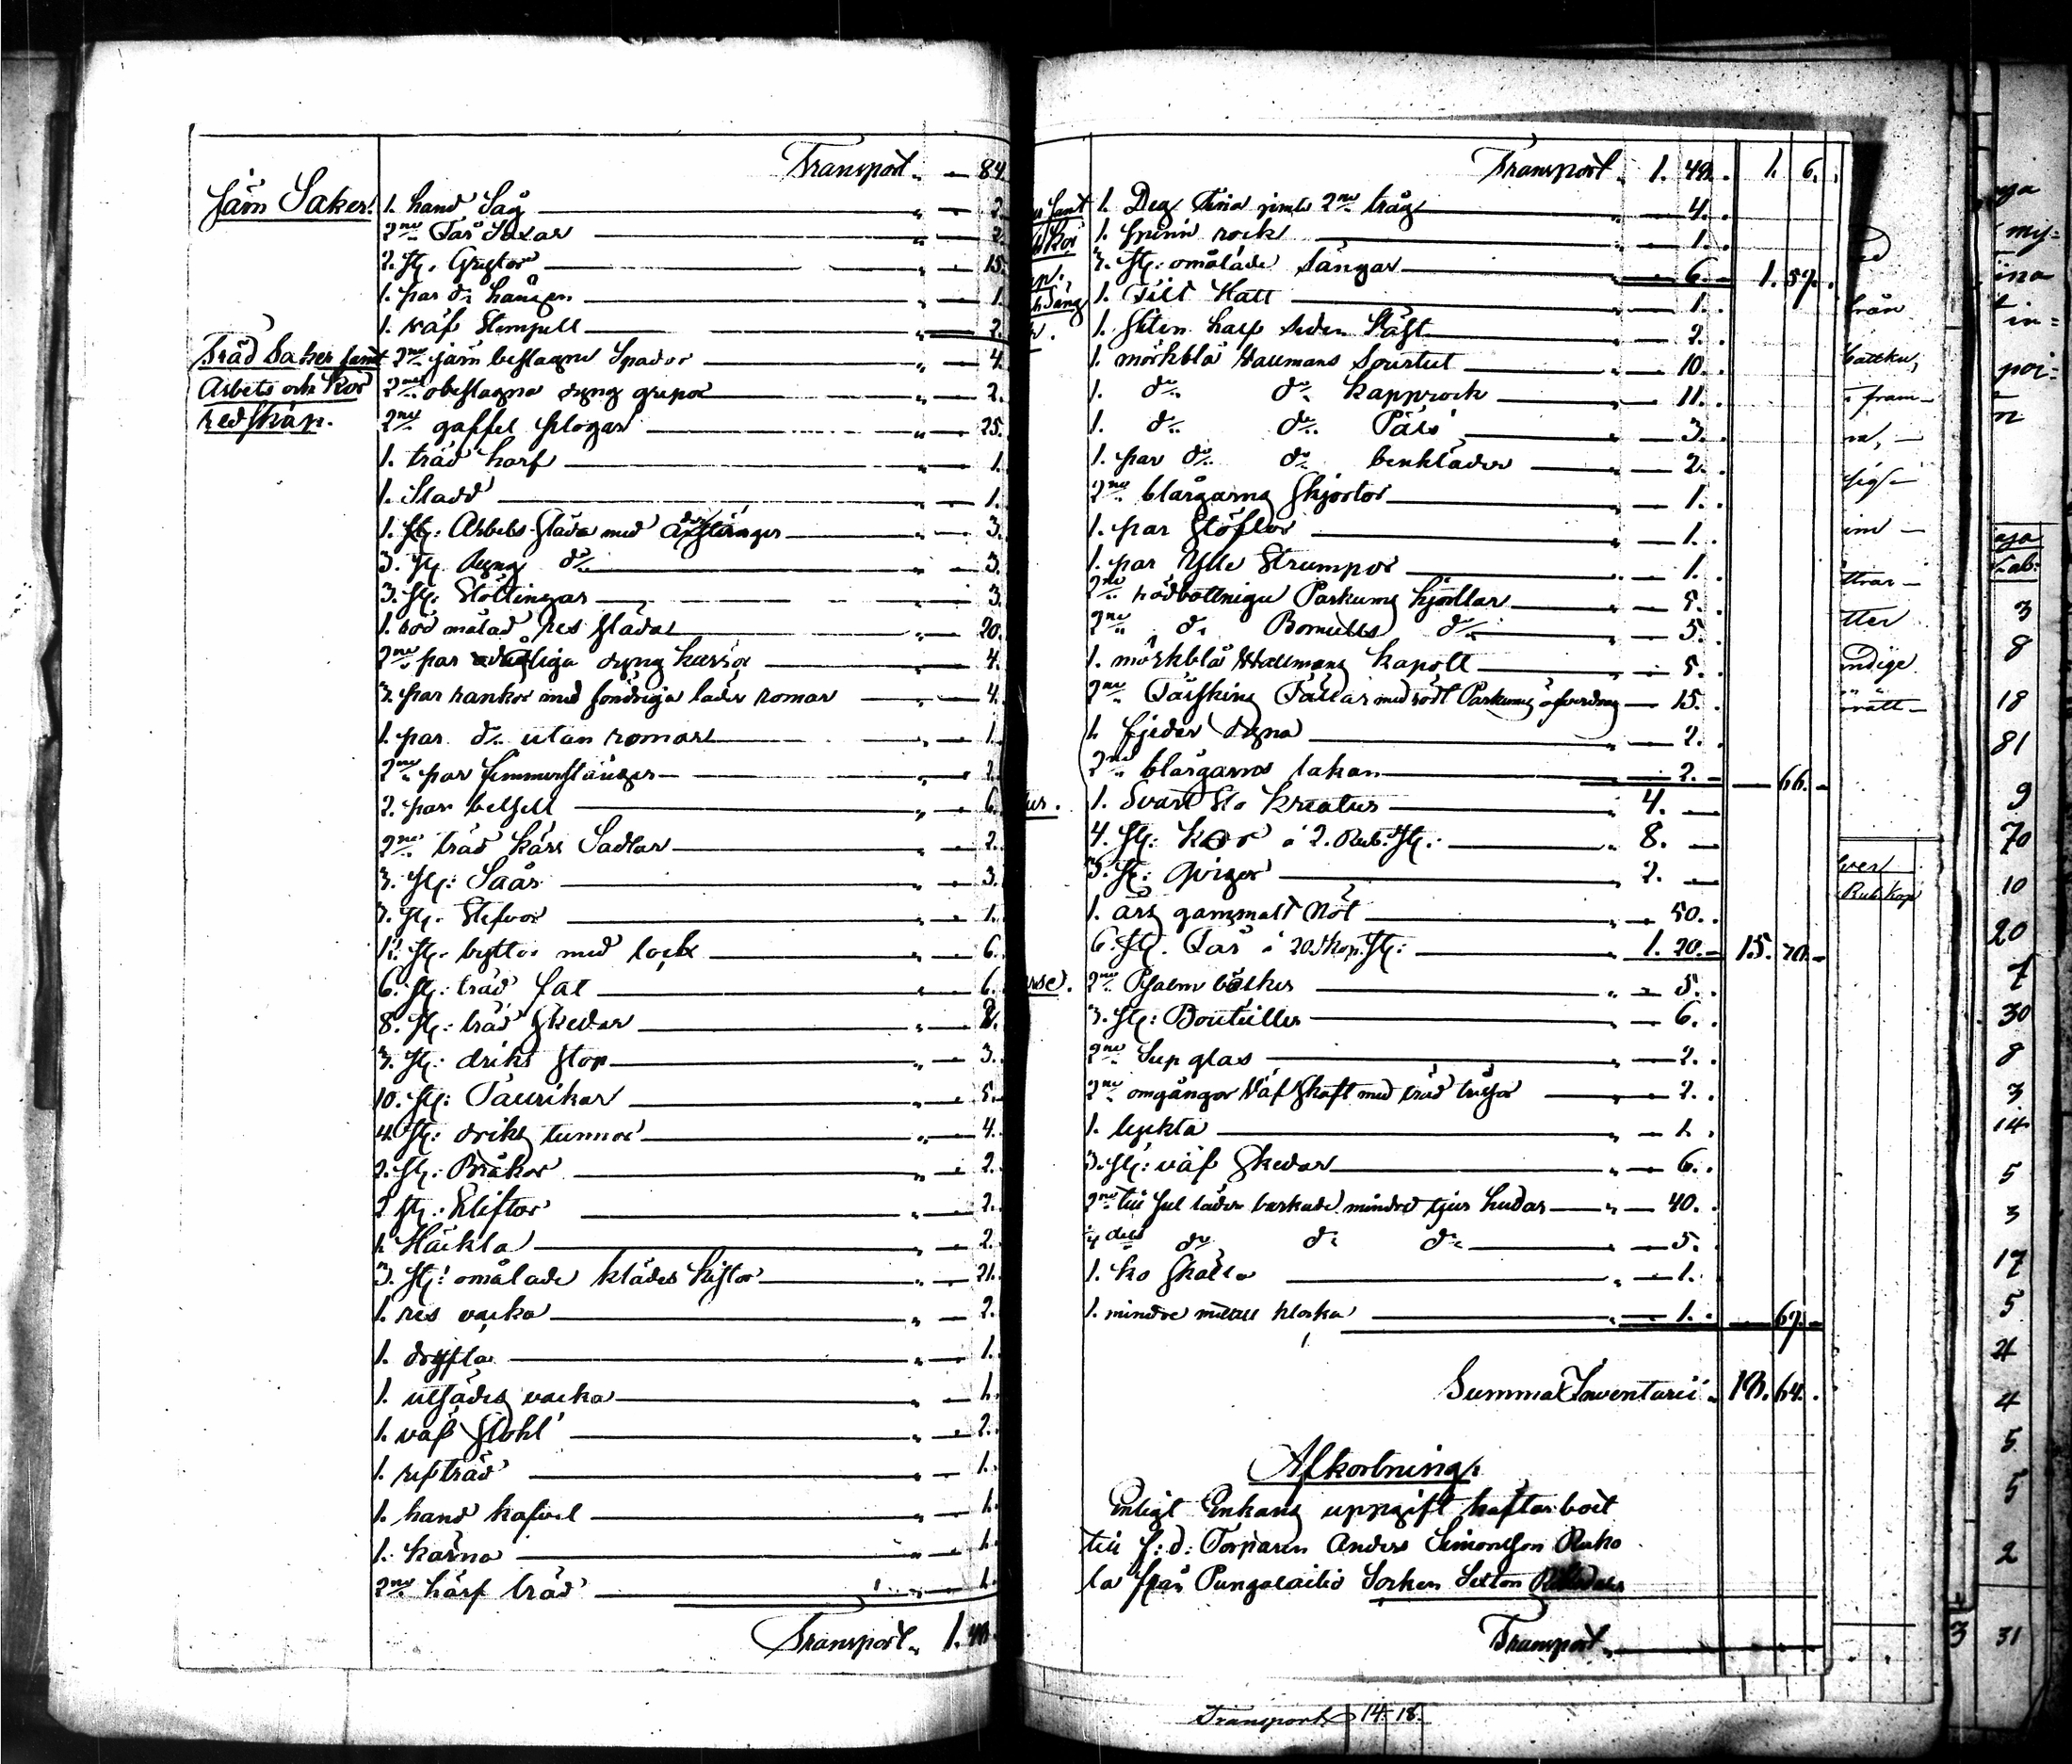 Transport. — 84.
Järn Saker. 1. hand Såg — 2.
2ne Får Saxar — 2.
2. st. Grytor — 15.
1. par do hängen — 1.
1. väf Stempell — 2.
Träd Saker samt 2ne järn beslagne Spador — 4.
Arbets och Kör 2ne obeslagna dyng grepor — 2.
redskap. 2ne gaffel plogar — 25.
1. träd harf — 1.
1. Sladd — 1.
1. st: Arbets Släda med stänger — 3.
3. st. dyng do — 3.
3. st. Stöttingar — 3.
1. röd målad res släda — 20.
2ne par dyng kärror — 4.
3. par rankor med söndriga läder romor — 4.
1. par do utan romor — 1.
2ne par Timmerstänger — 2.
2. par betsell — 6.
2ne träd kärr Sadlar — 2.
3. st: Såår — 3.
3. st. Stefvor — 1.
12. st. byttor med lock — 6.
6. st: träd fat — 6.
8. st: träd Skedar — 2.
3. st: driks stop — 3.
10. st: Tallrikar — 5.
4. st: driks tunnor — 4.
2. st: Bråkor — 2.
2 st: Kliftor — 2.
1. Häckla — 2.
3. st: omålade klädes kistor — 21.
1. res vacka — 2.
1. dryfta — 1.
1. utsädes vacka — 1.
1. väf Stohl — 2.
1. refträd — 1.
1. hand kafvel — 1.
1. kärna — 1.
2ne härf träd — 1.
Transport. 1. 49.
Transport. 1. 49. 1. 6.
1. Deg Tina jemte 2ne tråg — 4.
1. spinn rock — 1.
3. st: omålade Sängar — 6. — 1. 57.
1. Filt Hatt — 1.
1. sliten half siden Väst — 2.
1. mörkblå Wallmans Sourtut — 10.
1. do do Kapprock — 11.
1. do do Päls — 3.
1. par do do benkläder — 2.
2ne blårgarns Skjortor — 1.
1. par Stöflor — 1.
1. par Ylle Strumpor — 1.
2ne rödbottniga Parkums kjortlar — 5.
2ne do Bomulls do — 5.
1. mörkblå Wallmans Kapott — 5.
2ne Fårskins Fällar med rödt Parkums öfverdrag — 15.
1. fjeder dyna — 2.
2ne blårgarns lakan — 2. — 66.
1. Svart Sto Kreatur — 4. —
4. st: Kor à 2. Rub. st: — 8. —
3. st: Qvigor — 2. —
1. års gammalt Nöt — 50.
6. st. Får à 20. kop. st: — 1. 20. — 15. 70. —
2ne Psalm böcker — 5.
3. st: Bouteiller — 6.
2ne Sup glas — 2.
2ne omgångor Väf Skaft med träd trissor — 2.
1. lyckta — 1.
3. st: väf Skedar — 6.
2ne till sul läder barkade mindre tjur hudar — 40.
do do do — 5.
1. ko skälla — 1.
1. mindre metall klocka — 1. — 67. —
Summa Inventarii. 19. 64.
Afkortning:
Enligt Enkans uppgift häftar boet
till f: d: Torparen Anders Simonsson Ruko
la från Pungalaitio Socken Sexton
Transport.
Transport 14. 18.